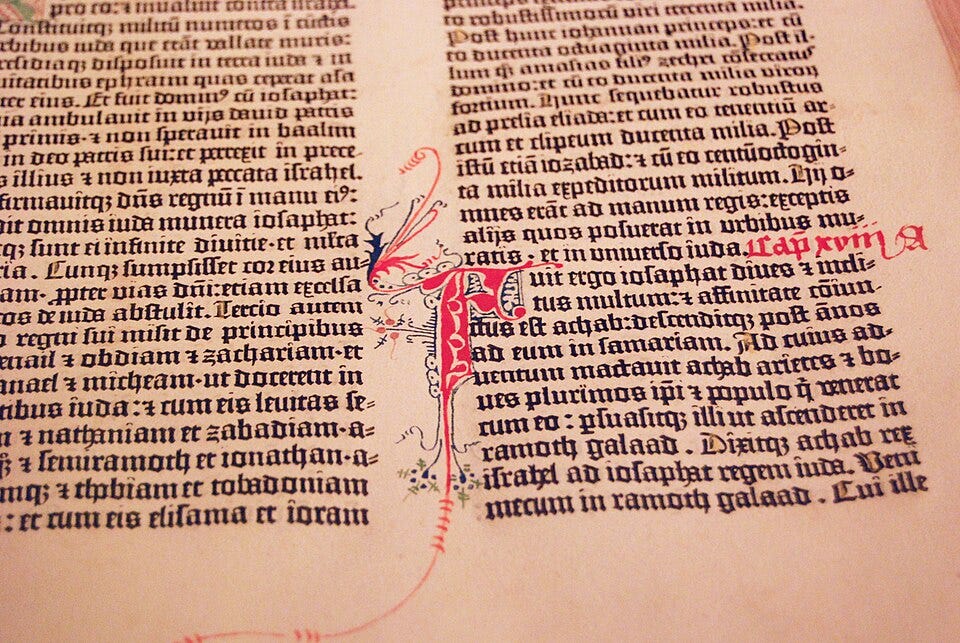 pro eo: ⁊ inualuit contra israhel.
Constituitq; militū numeros ī cūctis
rbibus iuda que erāt vallate muris:
residiaq; disposuit in terra iuda ⁊ in
uitatibus ephraim quas ceperat asa
ter eius. Et fuit domin⁹ cū iosaphat:
ia ambulauit in vijs dauid patris
primis· ⁊ non sperauit in baalim
in deo patris sui: et perrexit in prece-
s illius ⁊ non iuxta peccata israhel.
firmauitq; dn̄s regnū ī manu ei⁹:
dit omnis iuda munera iosaphat:
tq; sunt ei infinite diuitie· et m̄lta
ria. Cunq; sumpsisset cor eius au-
am· ꝓpter vias dn̄i: etiam excelsa
cos de iuda abstulit. Tercio autem
o regni sui misit de principibus
enail ⁊ obdiam ⁊ zachariam· et
anael ⁊ micheam· ut docerent in
tibus iuda: ⁊ cum eis leuitas se-
⁊ nathaniam et zabadiam· a-
⁊ semiramoth et ionathan· a-
mq; ⁊ thobiam et tobadoniam
: et cum eis elisama et ioram
principis
to robustissimorū viri trecenta milia.
Post hunc iohannan princeps: et cū
eo ducenta octuaginta milia. Post il-
lum q̄ꝫ amasias fili⁹ zechri cōsecrat⁹
domino: et cū eo ducenta milia viroꝝ
fortium. Hunc sequebatur robustus
ad prelia eliada: et cum eo tenentiū ar-
cum et clipeum ducenta milia. Post
istū etiā iozabad: ⁊ cū eo centūoctogin-
ta milia expeditorum militum. Hij o-
mnes erāt ad manum regis: exceptis
alijs quos posuerat in vrbibus mu-
ratis· et in vniuerso iuda. Cap xviij A
Fuit ergo iosaphat diues ⁊ incli-
tus multum: ⁊ affinitate cōiun-
ctus est achab: descenditq; post ānos
ad eum in samariam. Ad cuius ad-
uentum mactauit achab arietes ⁊ bo-
ues plurimos ip̄i ⁊ populo q̄ venerat
cum eo: ꝑsuasitq; illi ut ascenderet in
ramoth galaad. Dixitq; achab rex
israhel ad iosaphat regem iuda. Veni
mecum in ramoth galaad. Cui ille